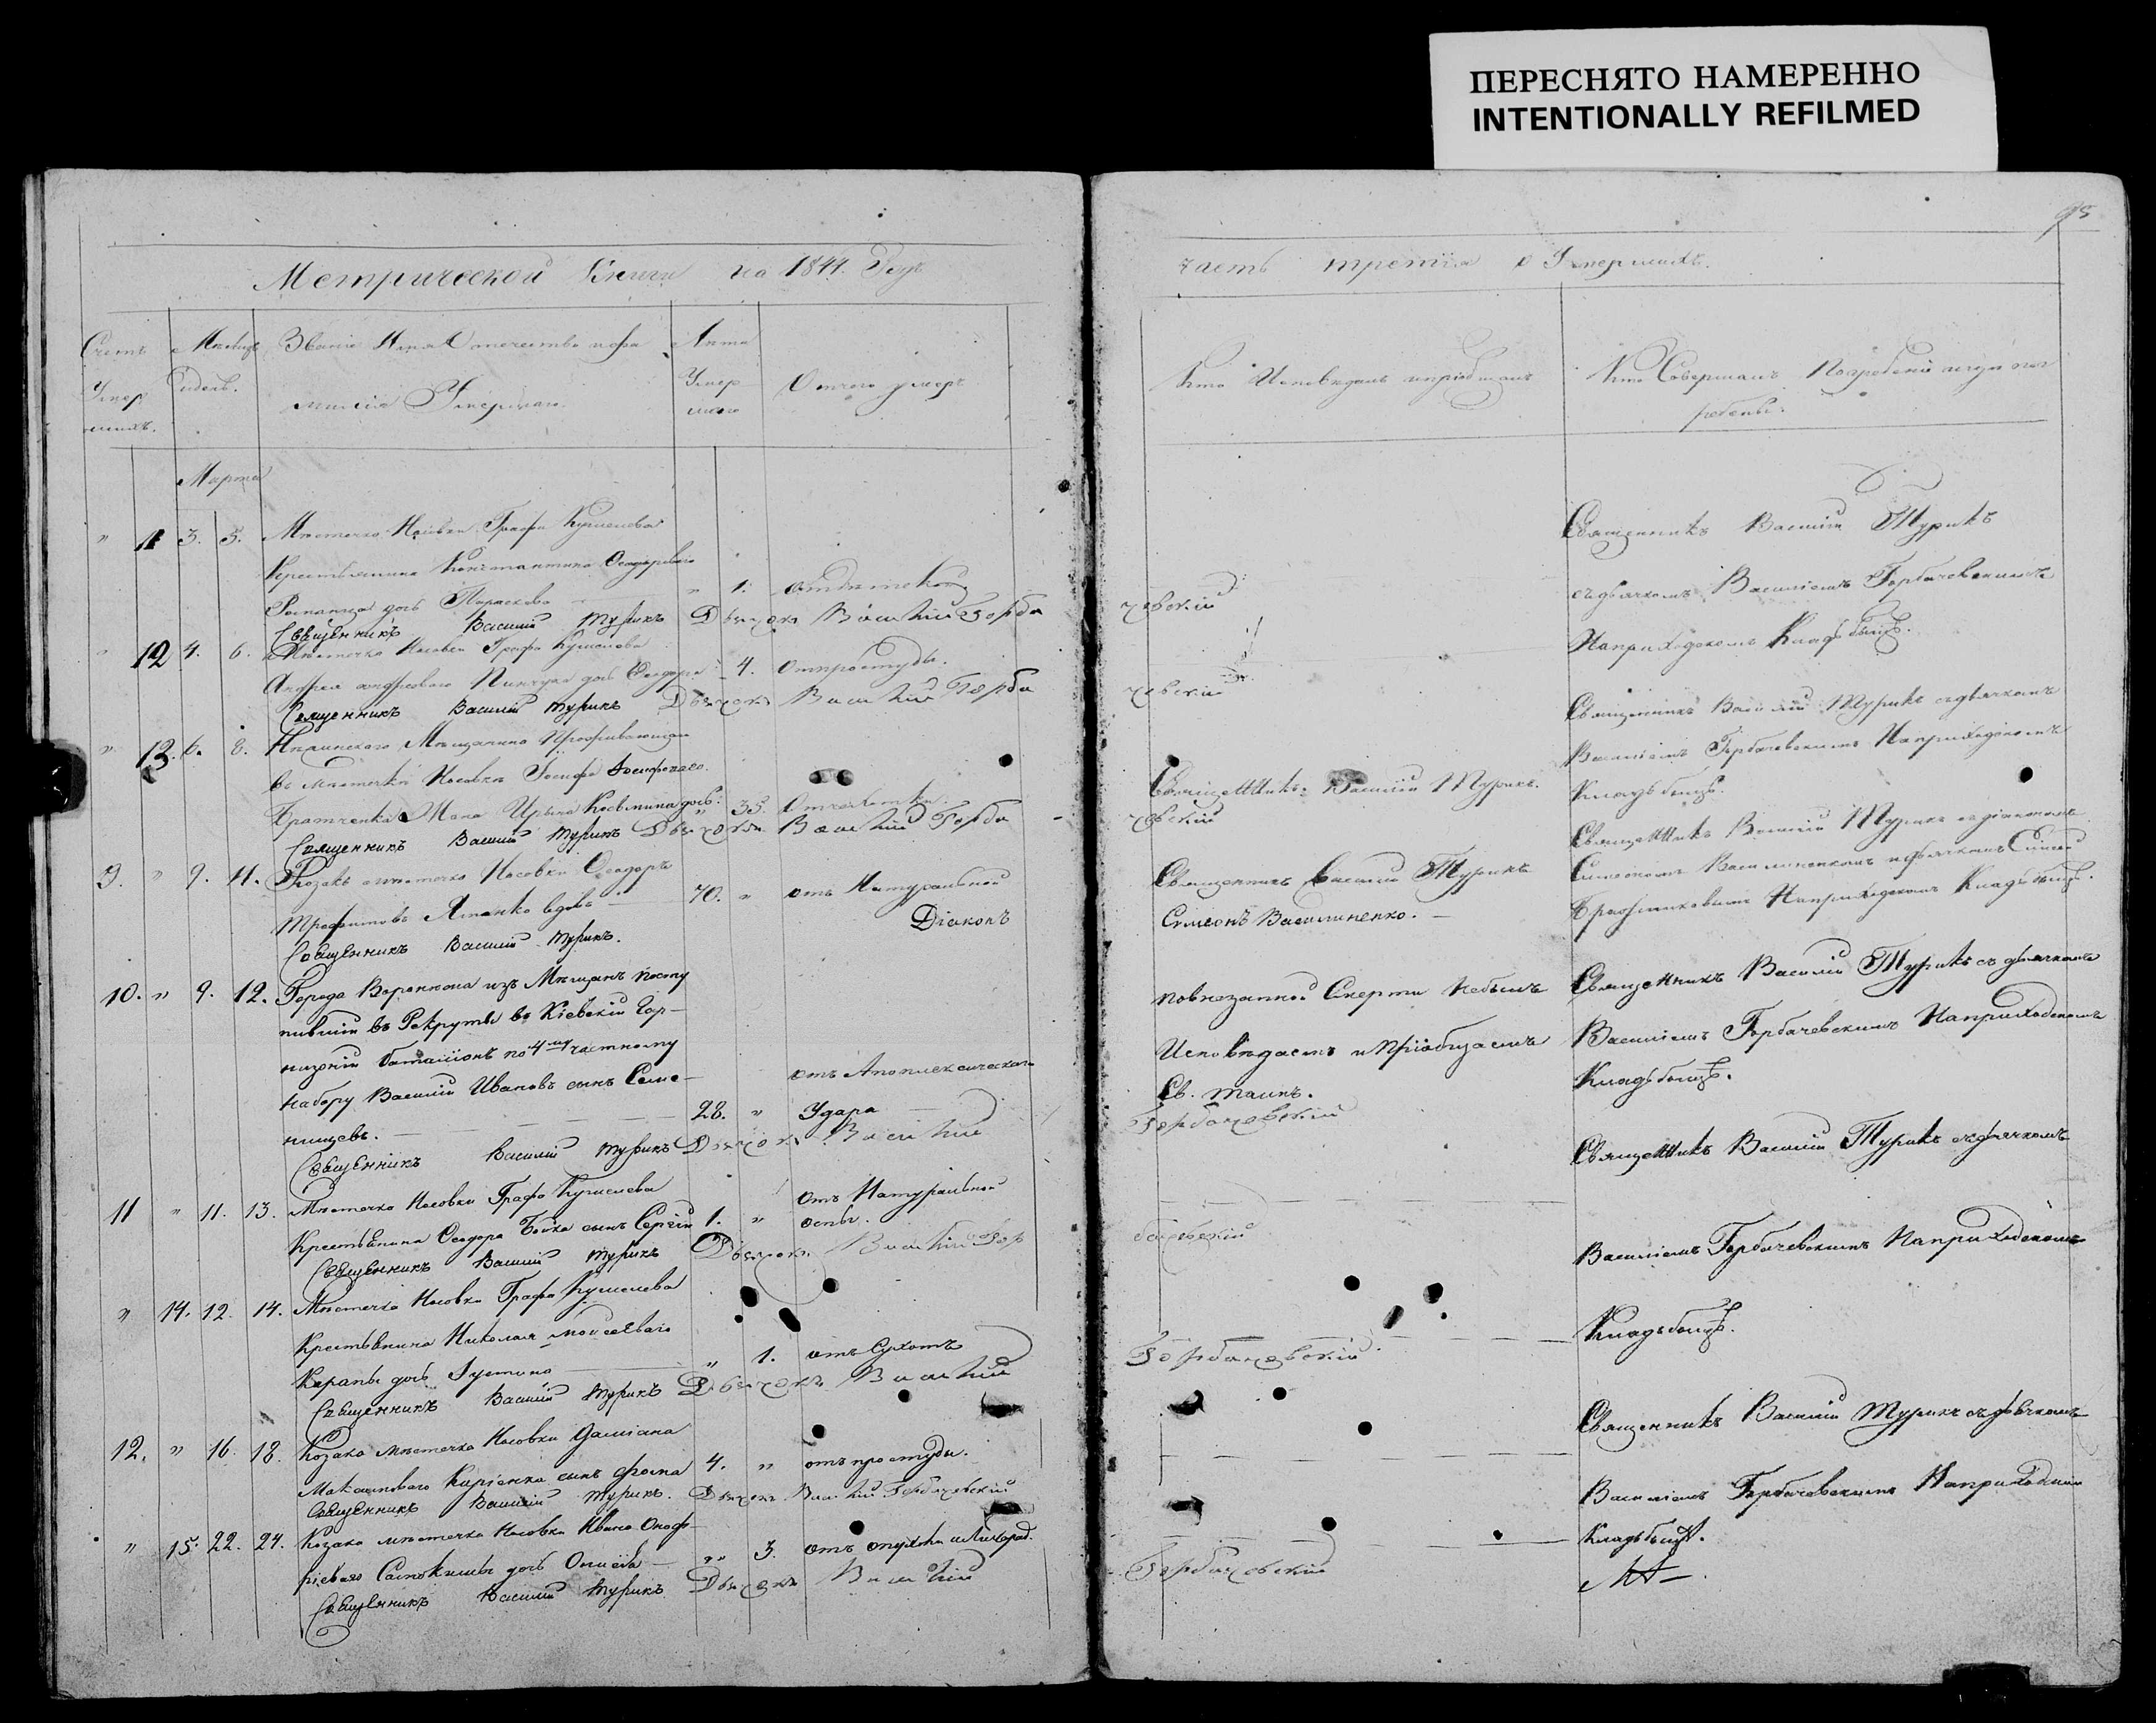 ПЕРЕСНЯТО НАМЕРЕННО
INTENTIONALLY REFILMED
95
Метрической Книги на 1844. Годъ
часть третія о Умершихъ.
Счетъ Умершихъ.
Мѣсяцъ и день.
Званіе Имя Отечество и фамилія Умершаго.
Лѣта Умершаго
Отчего умеръ
Кто Исповѣдалъ и пріобщалъ
Кто Совершалъ Погребеніе и гдѣ погребены.
Марта
" 11 3. 5. Мѣстечка Носовки Графа Кушелева
Крестьянина Константина Феодорова
дочь Параскева " 1.
Священникъ Василій Турикъ Дьячокъ Василій Горбачевскій
Священникъ Василій Турикъ
съ дьячкомъ Василіемъ Горбачевскимъ
На приходскомъ Кладбищѣ.
" 12 4. 6. Мѣстечка Носовки Графа Кушелева
Андрея дочь Феодора " 4. От простуды.
Священникъ Василій Турикъ Дьячокъ Василій Горбачевскій
Священникъ Василій Турикъ съ дьячкомъ
Василіемъ Горбачевскимъ На приходскомъ
Кладбищѣ.
" 13. 6. 8. Нѣжинскаго Мѣщанина Проживающаго
въ мѣстечкѣ Носовкѣ Іосифа Іосифоваго
Братченка Жена Козьмина дочь " 35.
Священникъ Василій Турикъ Дьячокъ Василій Горбачевскій
Священникъ Василій Турикъ.
Священникъ Василій Турикъ съ діакономъ
9. " 9. 11. Козакъ мѣстечка Носовки Феодоръ
Трофимовъ вдовъ 70. " отъ Натуральной
Священникъ Василій Турикъ. Діаконъ
Священникъ Василій Турикъ
Симеонъ Василиненко.
Симеономъ Василиненкомъ и дьячкомъ
На приходскомъ Кладбищѣ.
10. " 9. 12. Города Воронкова изъ Мѣщанъ Поступившій въ Рекруты въ Кіевскій Гарнизонній баталіонъ по 4му частному
набору Василій Ивановъ сынъ
28. " отъ Апоплексическаго
Удара
Священникъ Василій Турикъ Дьячокъ Василій
Горбачевскій
По внезапной Смерти Небылъ
Исповѣданъ и Пріобщенъ
Св. Таинъ.
Священникъ Василій Турикъ съ дьячкомъ
Василіемъ Горбачевскимъ На приходскомъ
Кладбищѣ.
11 " 11. 13. Мѣстечка Носовки Графа Кушелева
Крестьянина Феодора Бойка сынъ Сергій 1. " Отъ Натуральной
оспы.
Священникъ Василій Турикъ Дьячокъ Василій Горбачевскій
Священникъ Василій Турикъ съ дьячкомъ
Василіемъ Горбачевскимъ На приходскомъ
Кладбищѣ.
" 14. 12. 14. Мѣстечка Носовки Графа Кушелева
Крестьянина Николая Моисеевого
дочь Іустина " 1. отъ Сухотъ
Священникъ Василій Турикъ Дьячокъ Василій
Горбачевскій
12. " 16. 18. Козака мѣстечка Носовки Даміана
Максимоваго Киріенка сынъ Фома 4. " отъ простуды.
Священникъ Василій Турикъ. Дьячокъ Василій Горбачевскій
Священникъ Василій Турикъ съ дьячкомъ
Василіемъ Горбачевскимъ На приходскомъ
Кладбищѣ.
" 15. 22. 24. Козака мѣстечка Носовки Ивана Онофріеваго дочь " 3. отъ опухоли и Лихорад.
Священникъ Василій Турикъ Дьячокъ Василій
Горбачевскій